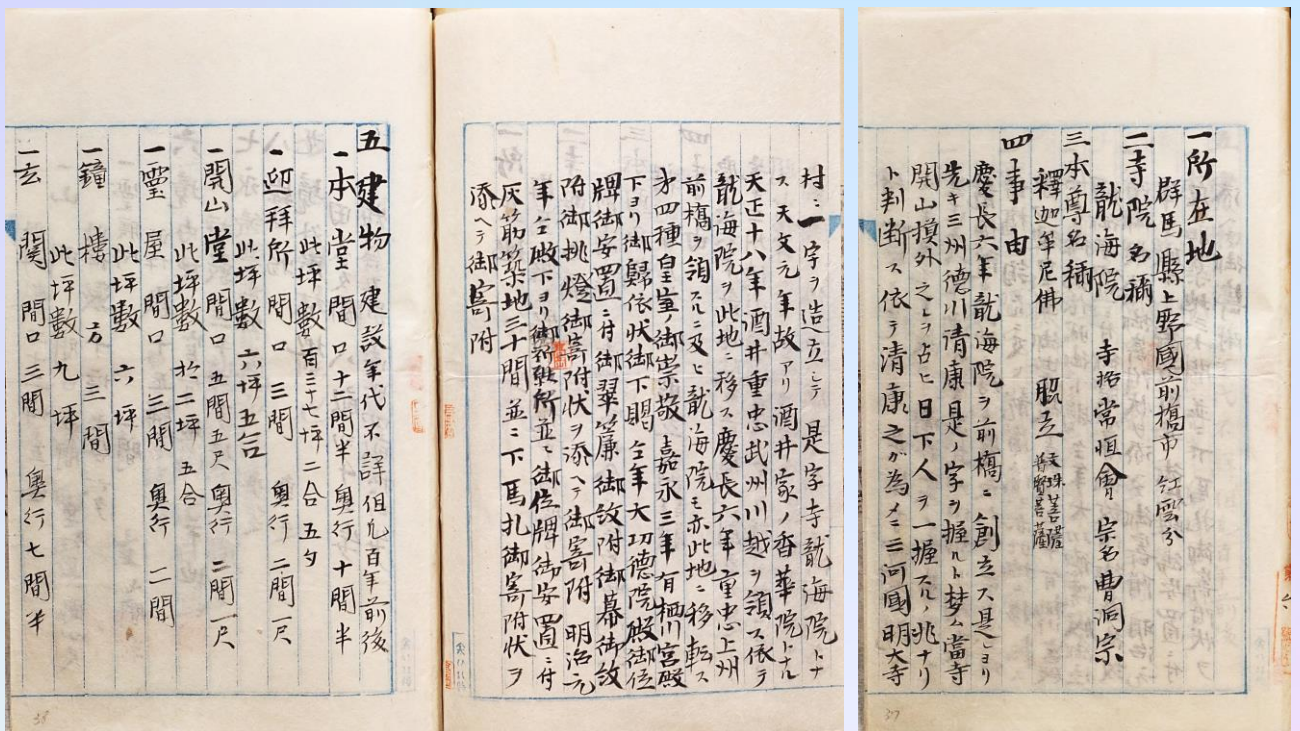 一所在地
群馬縣上野國前橋市紅雲分
二寺院名稱
龍海院 寺格常恒會 宗名曹洞宗
三本尊名稱
釋迦牟尼佛 脇立 文珠菩薩 普賢菩薩
四事由
慶長六年龍海院ヲ前橋ニ創立ス是ヨリ
先キ三州德川清康是ノ字ヲ握ルト夢ム當寺
開山摸外之レヲ占ヒ日下人ヲ一握スルノ兆ナリ
ト判断ス依テ清康之ガ為メニ三河國明大寺
村ニ一宇ヲ造立シテ是字寺龍海院トナ
ス天文元年故アリ酒井家ノ香華院トナル
天正十八年酒井重忠武州川越ヲ領ス依テ
龍海院ヲ此地ニ移ス慶長六年重忠上州
前橋ヲ領スルニ及ヒ龍海院モ亦此地ニ移転ス
才四種皇室ノ御崇敬 嘉永三年有栖川宮殿
下ヨリ御歸依状御下賜仝年大功德院殿御位
牌御安置ニ付御翠簾御紋附御幕御紋
附御挑燈御寄附状ヲ添ヘテ御寄附 明治元
年仝殿下ヨリ御祈願所並ニ御位牌御安置ニ付
灰筋築地三十間並ニ下馬札御寄附状ヲ
添ヘテ御寄附
五建物 建設年代不詳但凡百年前後
一本堂 間口十二間半 奥行十間半
此坪數百三十七坪二合五夕
一迎拜所 間口三間 奥行二間一尺
此坪數六坪五合
一開山堂 間口五間五尺 奥行二間一尺
此坪數拾二坪五合
一靈屋 間口三間 奥行二間
此坪數六坪
一鐘樓 方三間
此坪數九坪
一玄関 間口三間 奥行七間半
37
38